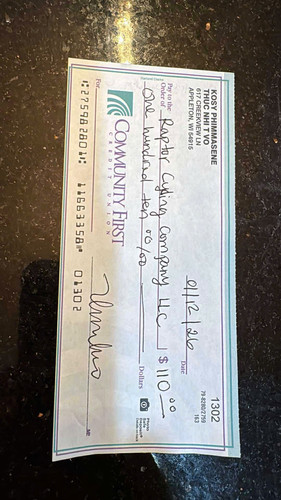 KOSY PHIMMASENE
THUC NHI T VO
617 CREEKVIEW LN
APPLETON, WI 54915
1302
79-8280/2759
163
01/12/26
Date
Pay to the
Order of
Raptor Cycling Company LLC
$ 110.00
One hundred ten 00/100
Dollars
COMMUNITY FIRST
CREDIT UNION
For
MP
⑆275982801⑆ 11663358⑈ 01302